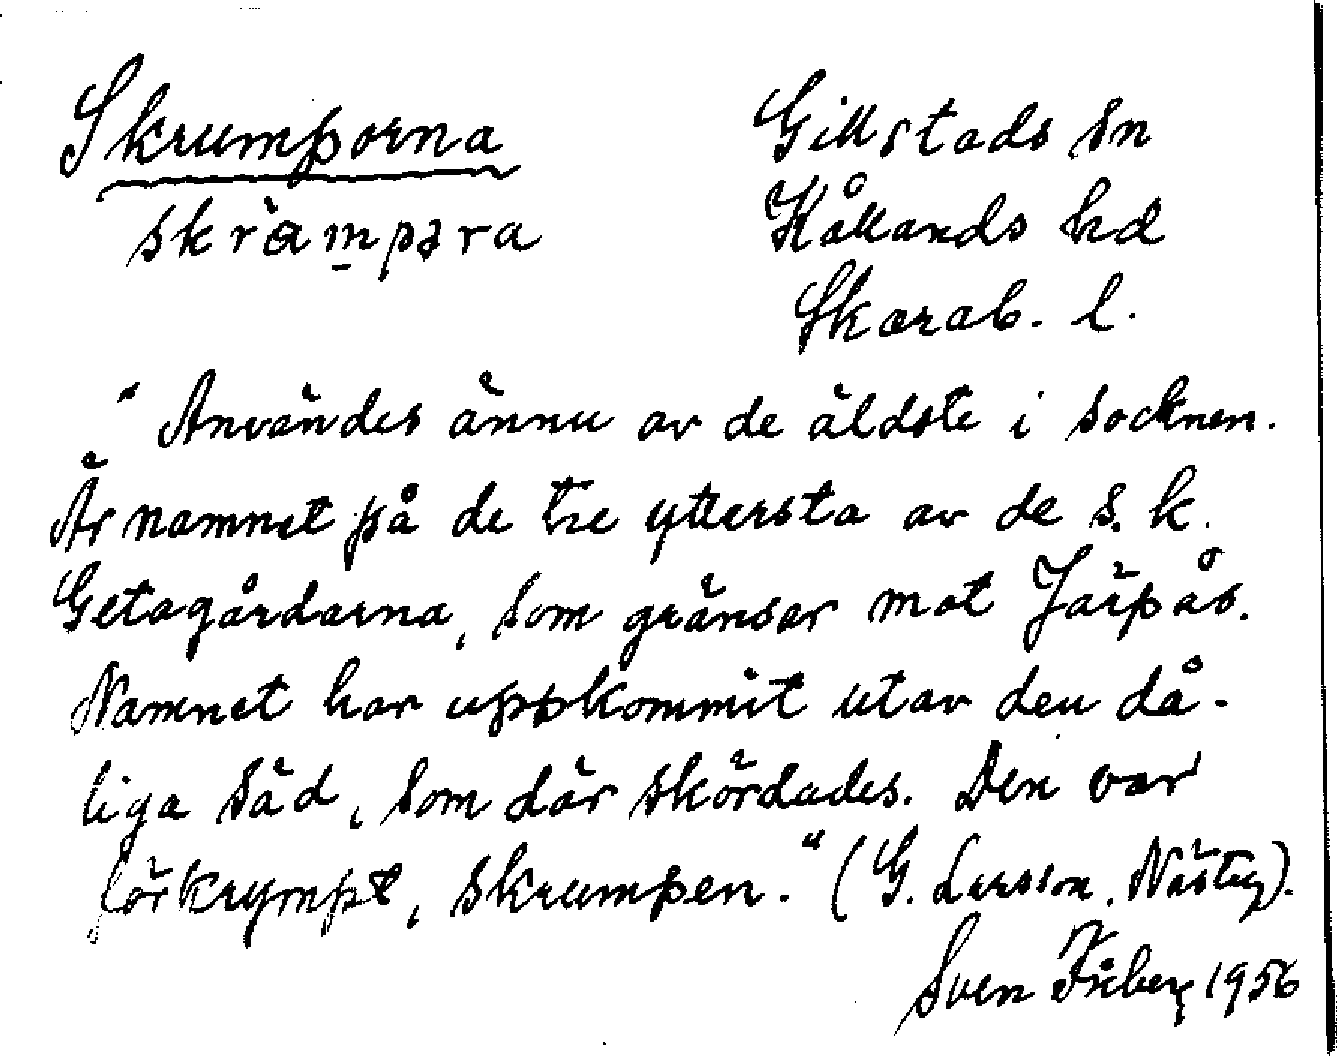 Skrumporna
Gillstads sn
skràmpəra
Kållands hd
Skarab. l.
"Användes ännu av de äldste i socknen.
Är namnet på de tre yttersta av de s. k.
Getagårdarna, som gränsar mot Järpås.
Namnet har uppkommit utav den då-
liga säd, som där skördades. Den var
förkrympt, skrumpen." (G. Larsson,
Sven 1956